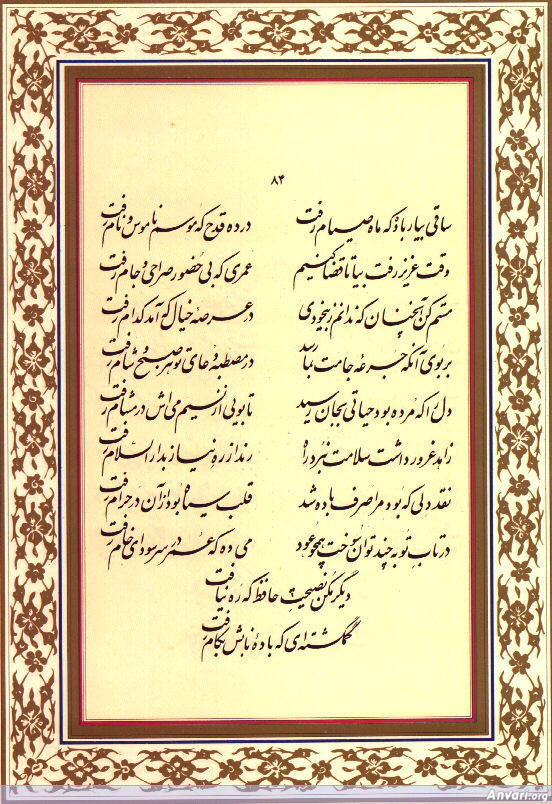 ۸۴
ساقی بیار باده که ماه صیام رفت در ده قدح که موسم ناموس و نام رفت
وقت عزیز رفت بیا تا قضا کنیم عمری که بی حضور صراحی و جام رفت
مستم کن آنچنان که ندانم ز بیخودی در عرصه خیال که آمد کدام رفت
بر بوی آنکه جرعه جامت بما رسد در مصطبه دعای تو هر صبح و شام رفت
دل را که مرده بود حیاتی بجان رسید تا بویی از نسیم می‌اش در مشام رفت
زاهد غرور داشت سلامت نبرد راه رند از ره نیاز بدارالسلام رفت
نقد دلی که بود مرا صرف باده شد قلب سیاه بود از آن در حرام رفت
در تاب توبه چند توان سوخت همچو عود می ده که عمر در سر سودای خام رفت
دیگر مکن نصیحت حافظ که ره نیافت
گمگشته‌ای که باده نابش بکام رفت
Anvari.org